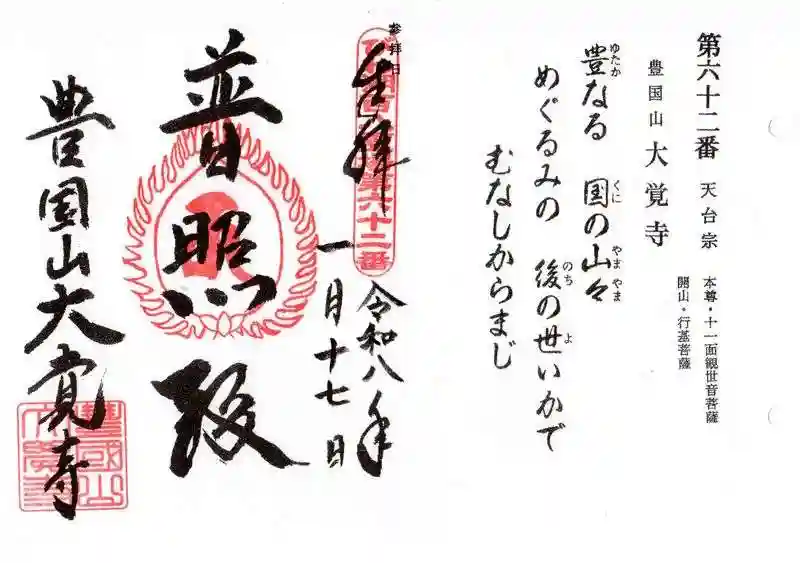 第六十二番 天台宗 本尊・十一面観世音菩薩
開山・行基菩薩
豊国山 大覚寺
豊なる 国の山々
ゆたか くに やま やま
めぐるみの 後の世いかで
のち よ
むなしからまじ
参拝日
奉拝
第六十二番
令和八年
一月十七日
普照殿
豊国山大覚寺